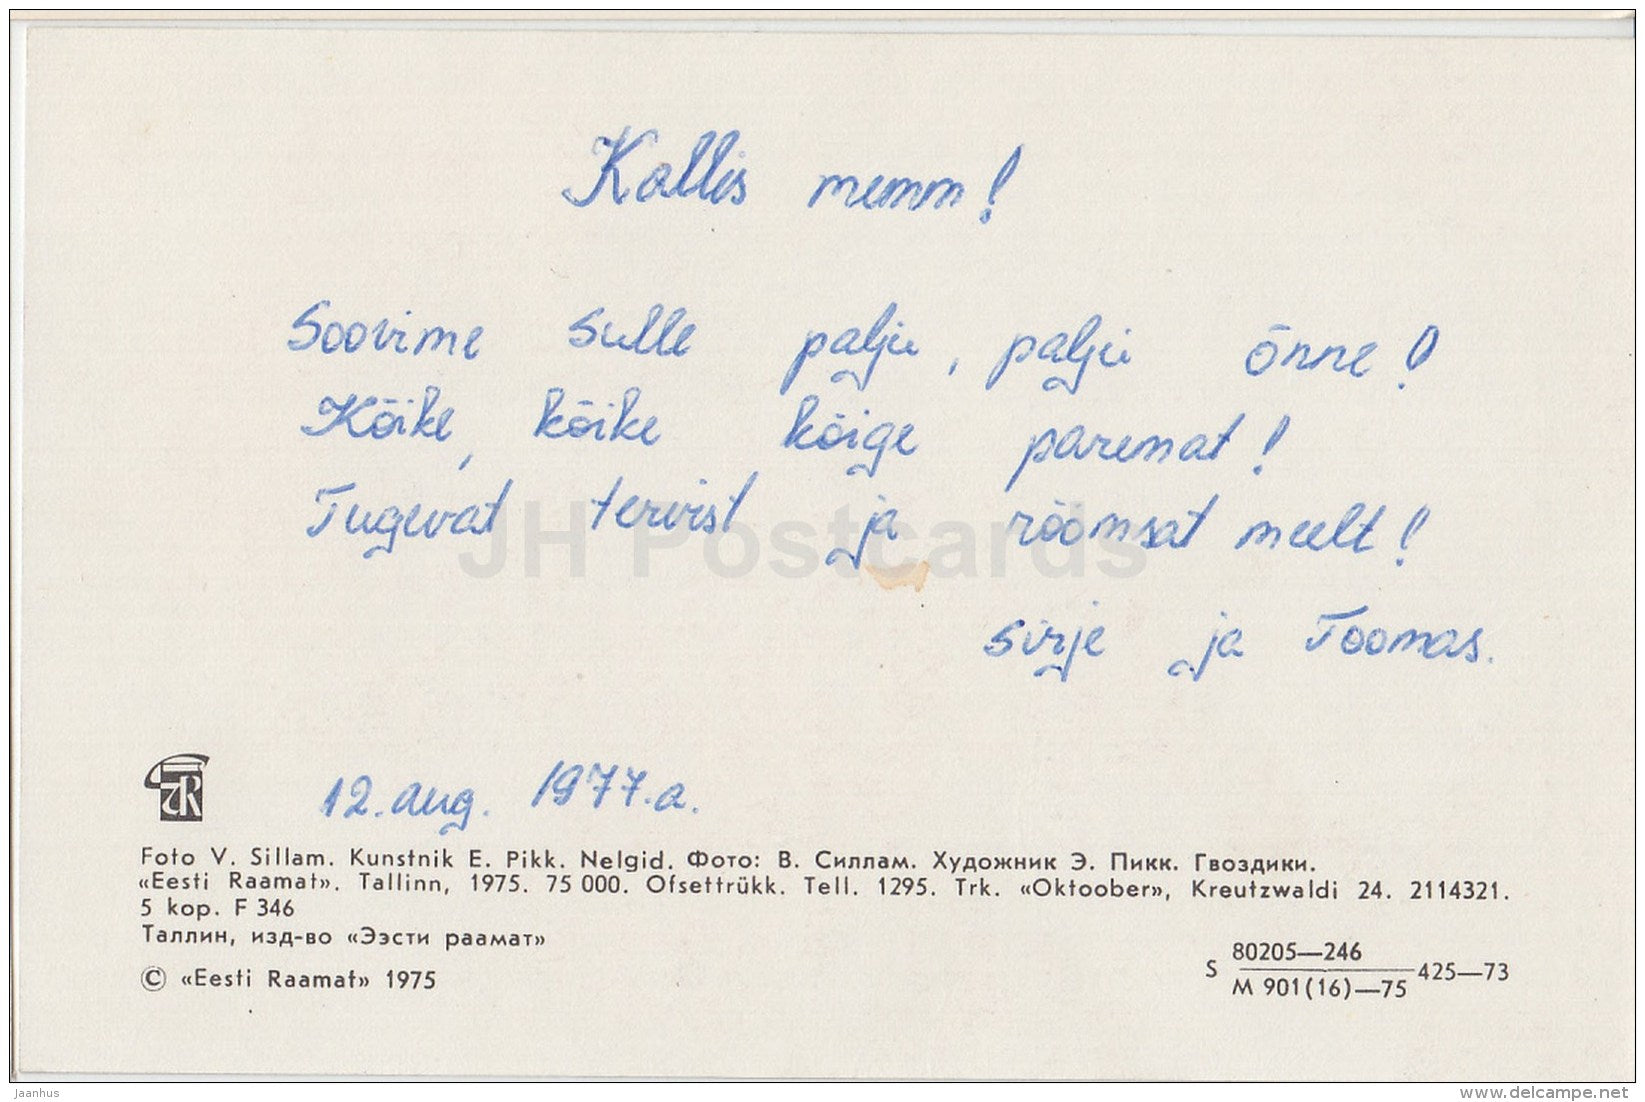 Kallis memm!
Soovime sulle palju, palju õnne!
Kõike, kõike kõige paremat!
Tugevat tervist ja rõõmsat meelt!
JH Postcards
Sirje ja Toomas.
12. aug. 1977.a.
Foto V. Sillam. Kunstnik E. Pikk. Nelgid. Фото: В. Силлам. Художник Э. Пикк. Гвоздики.
«Eesti Raamat». Tallinn, 1975. 75 000. Ofsettrükk. Tell. 1295. Trk. «Oktoober», Kreutzwaldi 24. 2114321.
5 kop. F 346
Таллин, изд-во «Ээсти раамат»
© «Eesti Raamat» 1975
S 80205—246
М 901(16)—75 425—73
jaanhus
www.delcampe.net